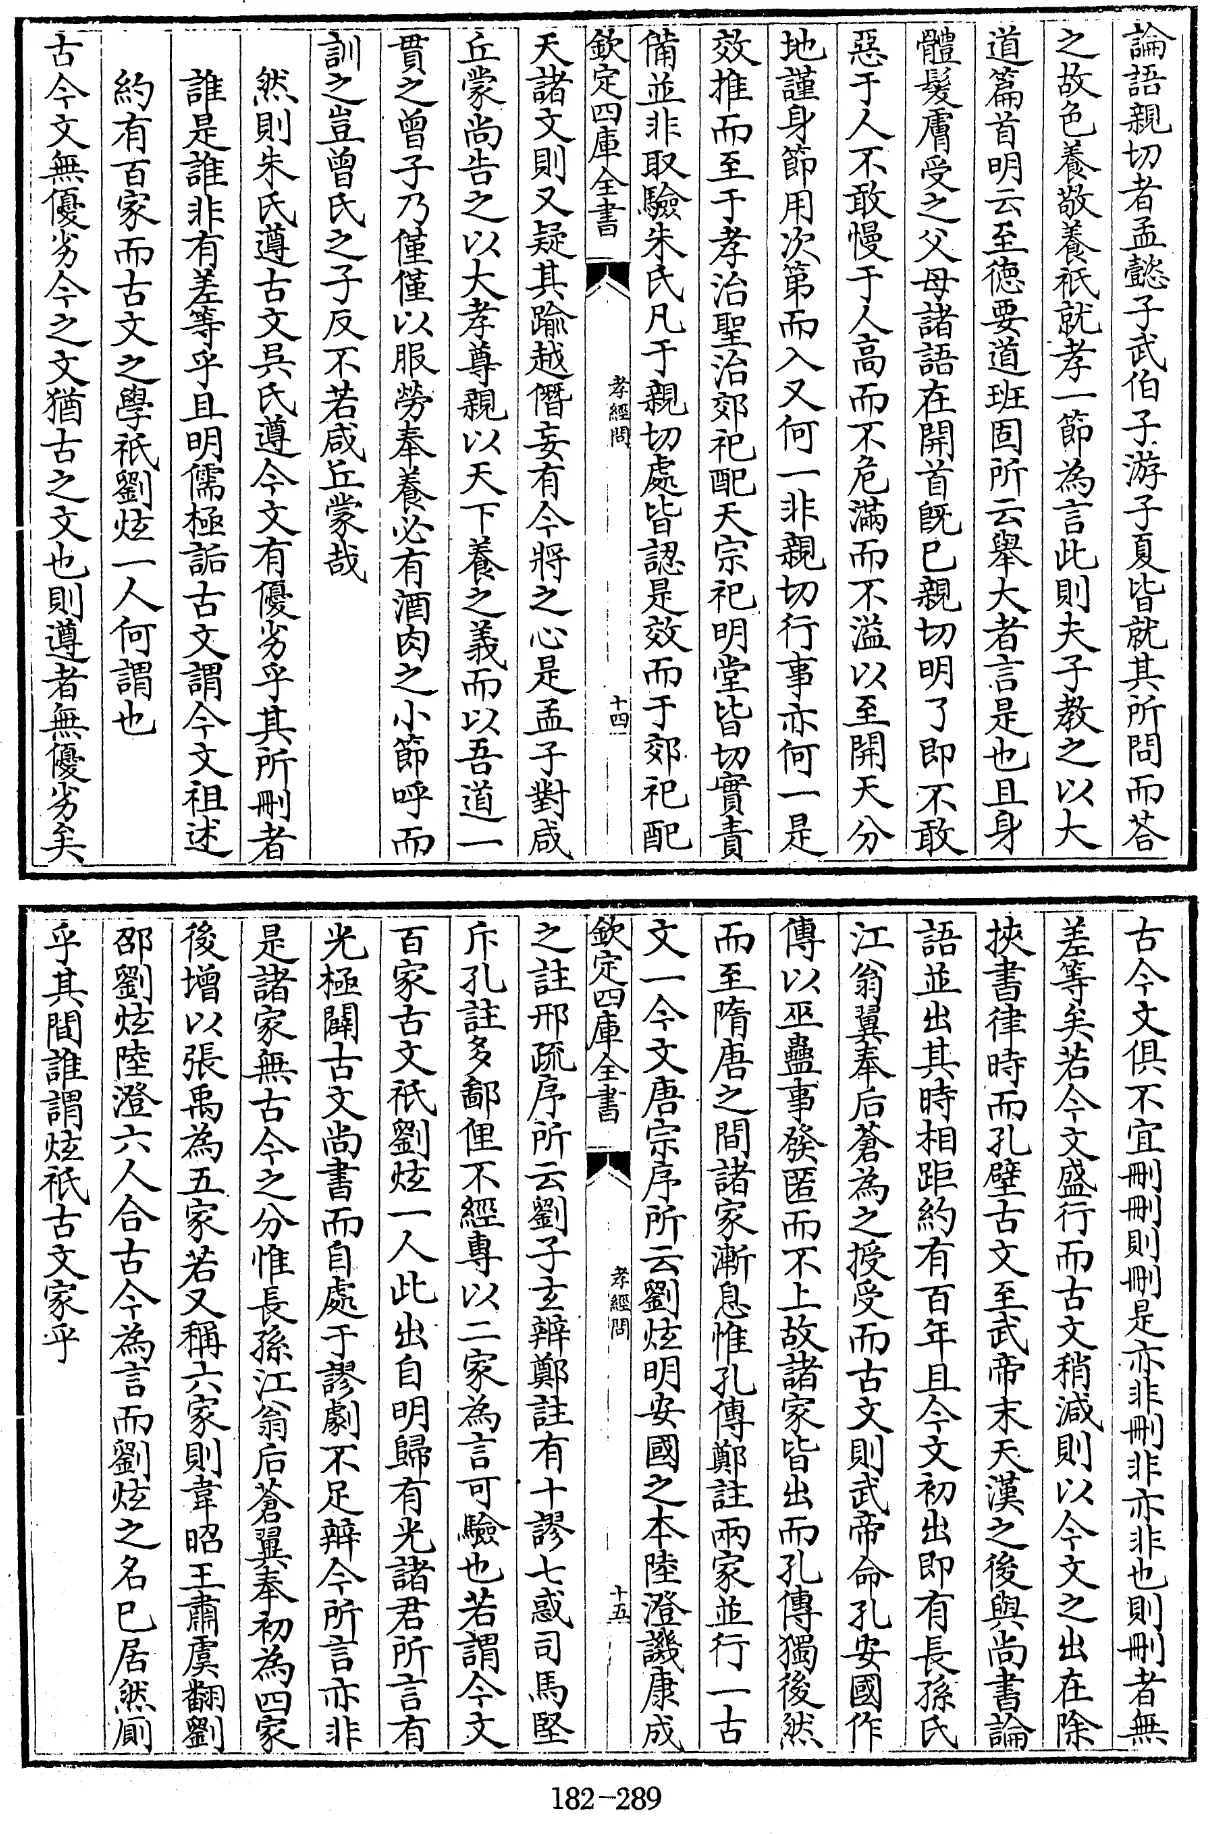 論語親切者孟懿子武伯子游子夏皆就其所問而荅
之故色養敬養祇就孝一節為言此則夫子教之以大
道篇首明云至徳要道班固所云舉大者言是也且身
體髮膚受之父母諸語在開首既已親切明了即不敢
惡于人不敢慢于人高而不危滿而不溢以至開天分
地謹身節用次第而入又何一非親切行事亦何一是
效推而至于孝治聖治郊祀配天宗祀明堂皆切實責
備並非取驗朱氏凡于親切處皆認是效而于郊祀配
欽定四庫全書
孝經問
十四
天諸文則又疑其踰越僭妄有今將之心是孟子對咸
丘蒙尚告之以大孝尊親以天下養之義而以吾道一
貫之曾子乃僅僅以服勞奉養必有酒肉之小節呼而
訓之豈曾氏之子反不若咸丘蒙哉
然則朱氏遵古文吳氏遵今文有優劣乎其所刪者
誰是誰非有差等乎且明儒極詬古文謂今文祖述
約有百家而古文之學祇劉炫一人何謂也
古今文無優劣今之文猶古之文也則遵者無優劣矣
古今文俱不宜刪刪則刪是亦非刪非亦非也則刪者無
差等矣若今文盛行而古文稍減則以今文之出在除
挾書律時而孔壁古文至武帝末天漢之後與尚書論
語並出其時相距約有百年且今文初出即有長孫氏
江翁翼奉后蒼為之授受而古文則武帝命孔安國作
傳以巫蠱事發匿而不上故諸家皆出而孔傳獨後然
而至隋唐之間諸家漸息惟孔傳鄭註兩家並行一古
文一今文唐宗序所云劉炫明安國之本陸澄譏康成
欽定四庫全書
孝經問
十五
之註邢疏序所云劉子玄辯鄭註有十謬七惑司馬堅
斥孔註多鄙俚不經專以二家為言可驗也若謂今文
百家古文祇劉炫一人此出自明歸有光諸君所言有
光極闢古文尚書而自處于謬劇不足辯今所言亦非
是諸家無古今之分惟長孫江翁后蒼翼奉初為四家
後增以張禹為五家若又稱六家則韋昭王肅虞翻劉
邵劉炫陸澄六人合古今為言而劉炫之名已居然厠
乎其間誰謂炫祇古文家乎
182-289